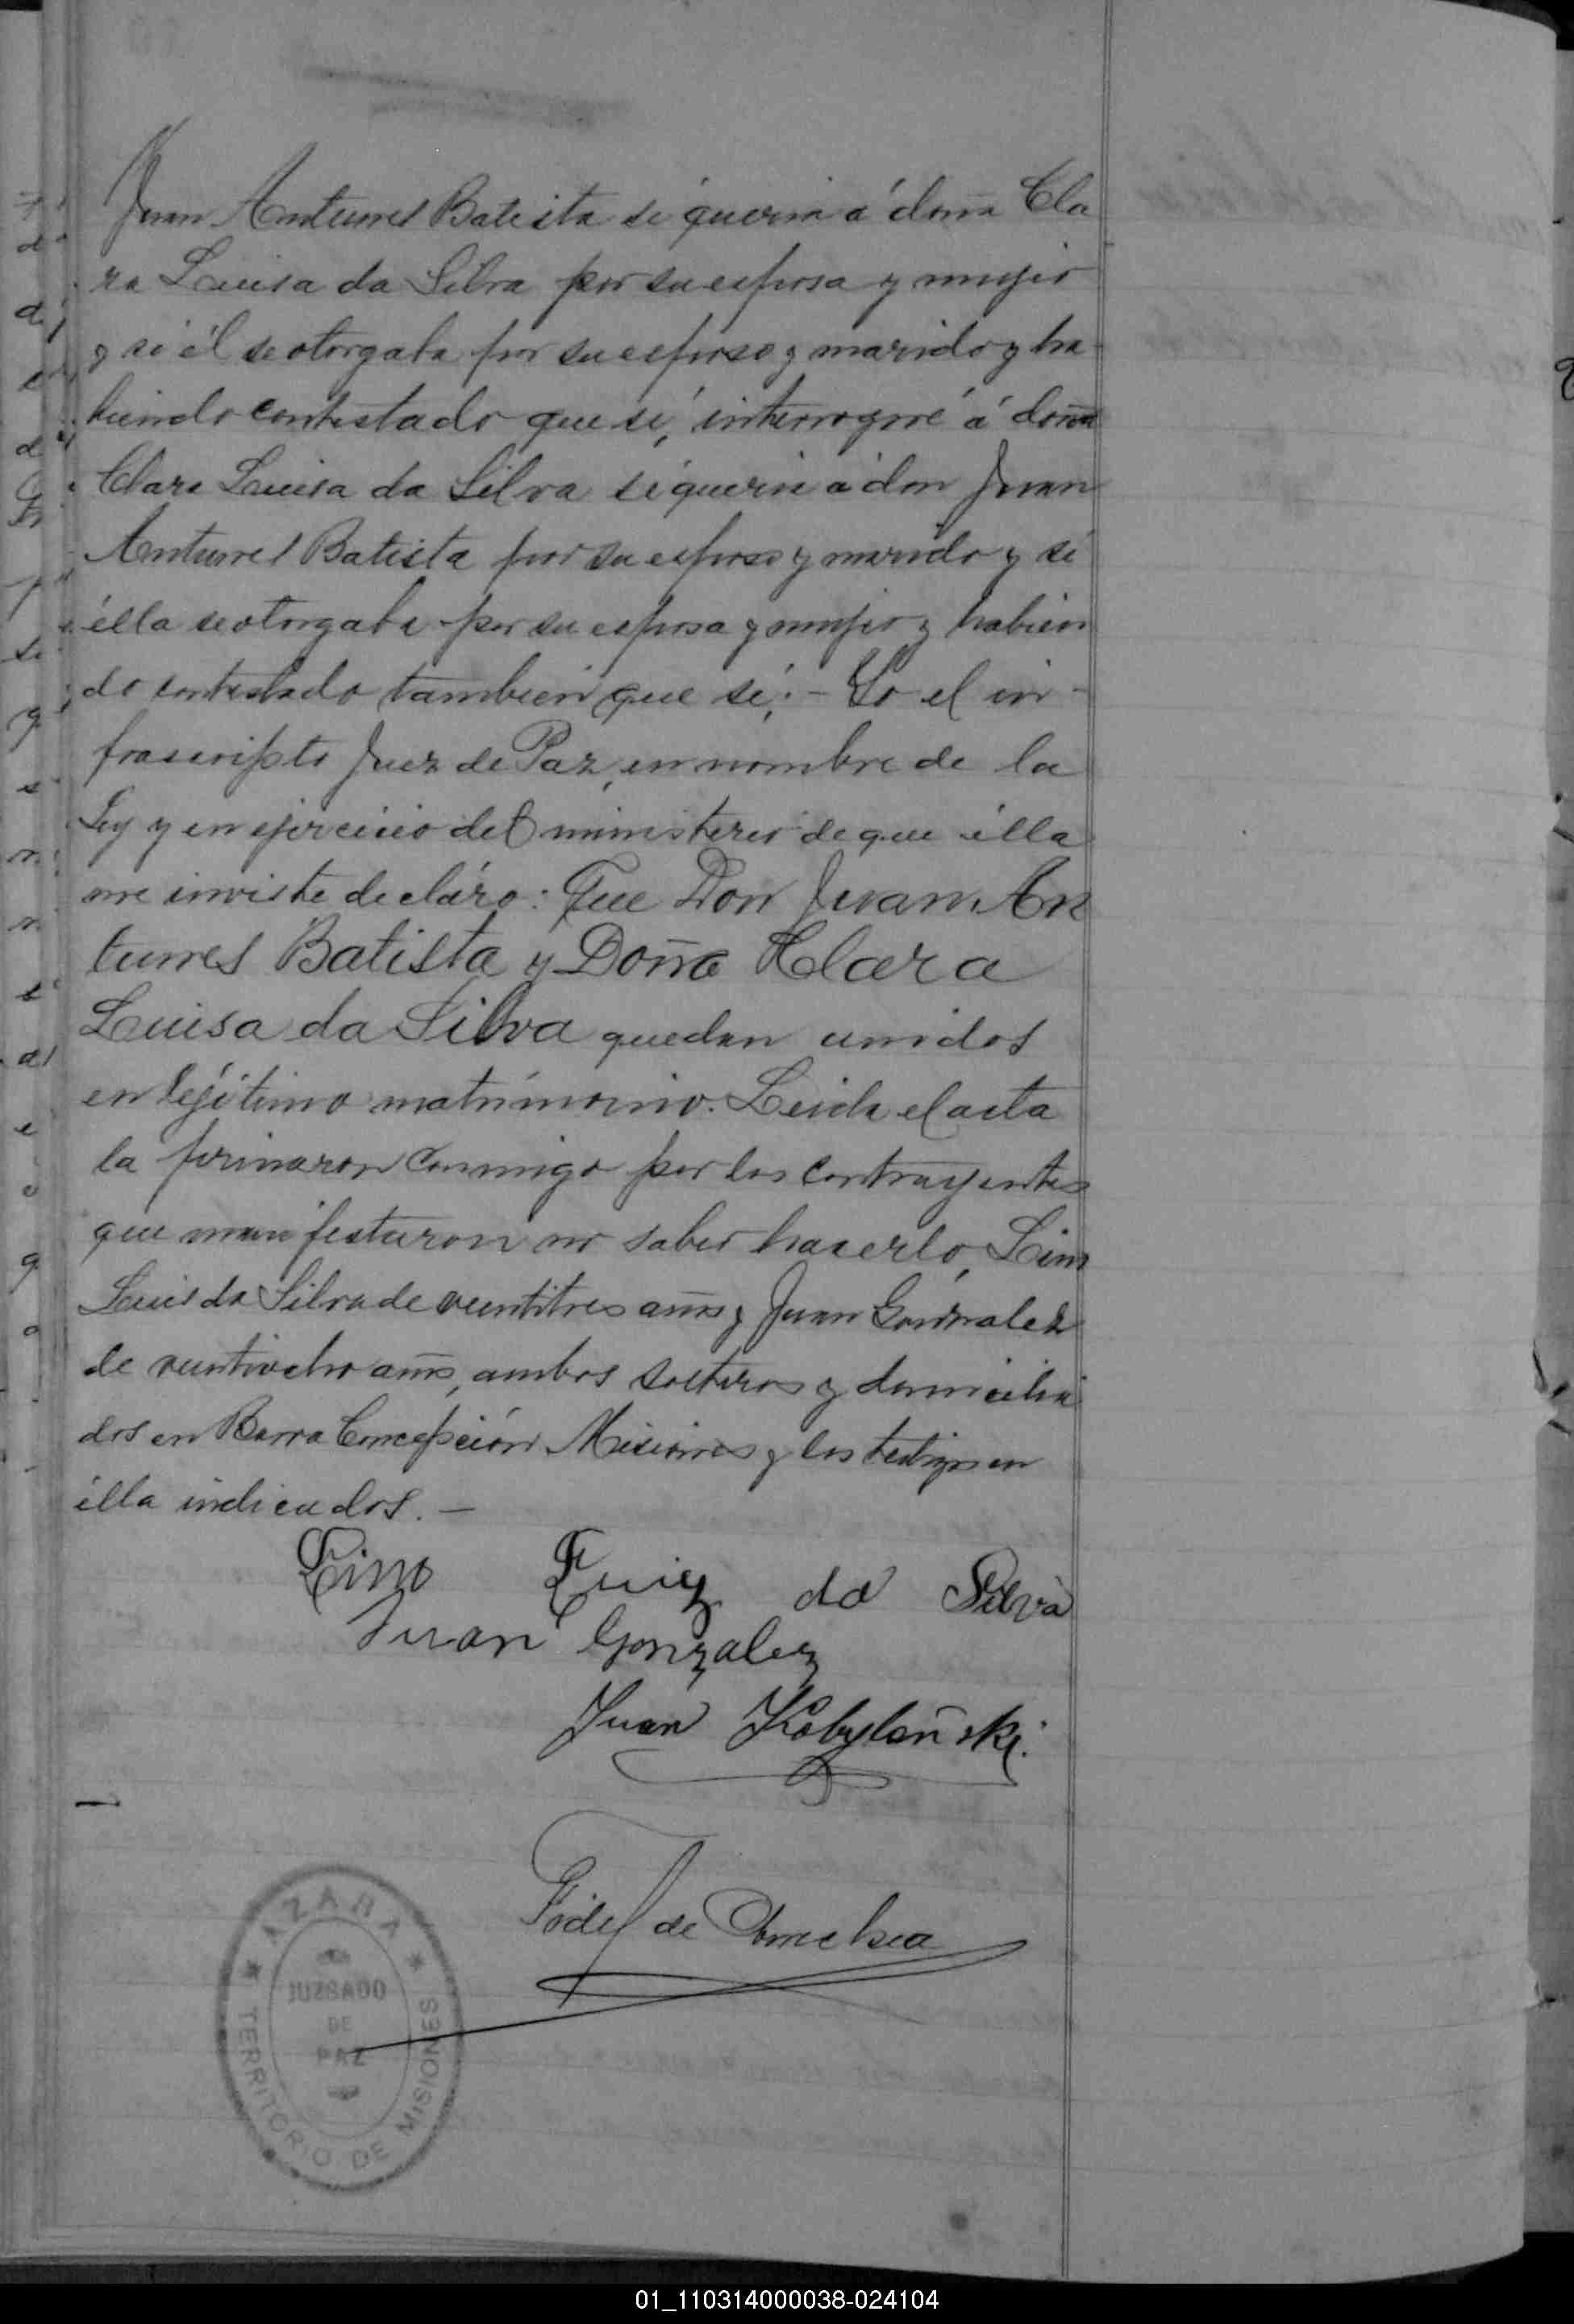 Juan Antunes Batista si queria á doña Cla
ra Luisa da Silva por su esposa y mujer
y si él se otorgaba por su esposo y marido y ha-
biendo contestado que sí, interrogué á doña
Clara Luisa da Silva si queria á don Juan
Antunes Batista por su esposo y marido y si
élla se otorgaba por su esposa y mujer y habien
do contestado tambien que sí;- Yo el in-
frascripto Juez de Paz, en nombre de la
Ley y en ejercicio del ministerio de que élla
me inviste decláro: Que Don Juan An
tunes Batista y Doña Clara
Luisa da Silva quedan unidos
en legítimo matrimonio. Leida el acta
la firmaron conmigo por los contrayentes
que manifestaron no saber hacerlo, Lino
Luis da Silva de veintitres años y Juan Gonzalez
de veintiocho años, ambos solteros y domicilia
dos en Barra Concepción Misiones y los testigos en
élla indicados.-
Lino Luiz da Silva
Juan Gonzalez
Juan Kobylañski.
Fidel de
AZARA
JUZGADO
DE
PAZ
TERRITORIO DE MISIONES
01_110314000038-024104